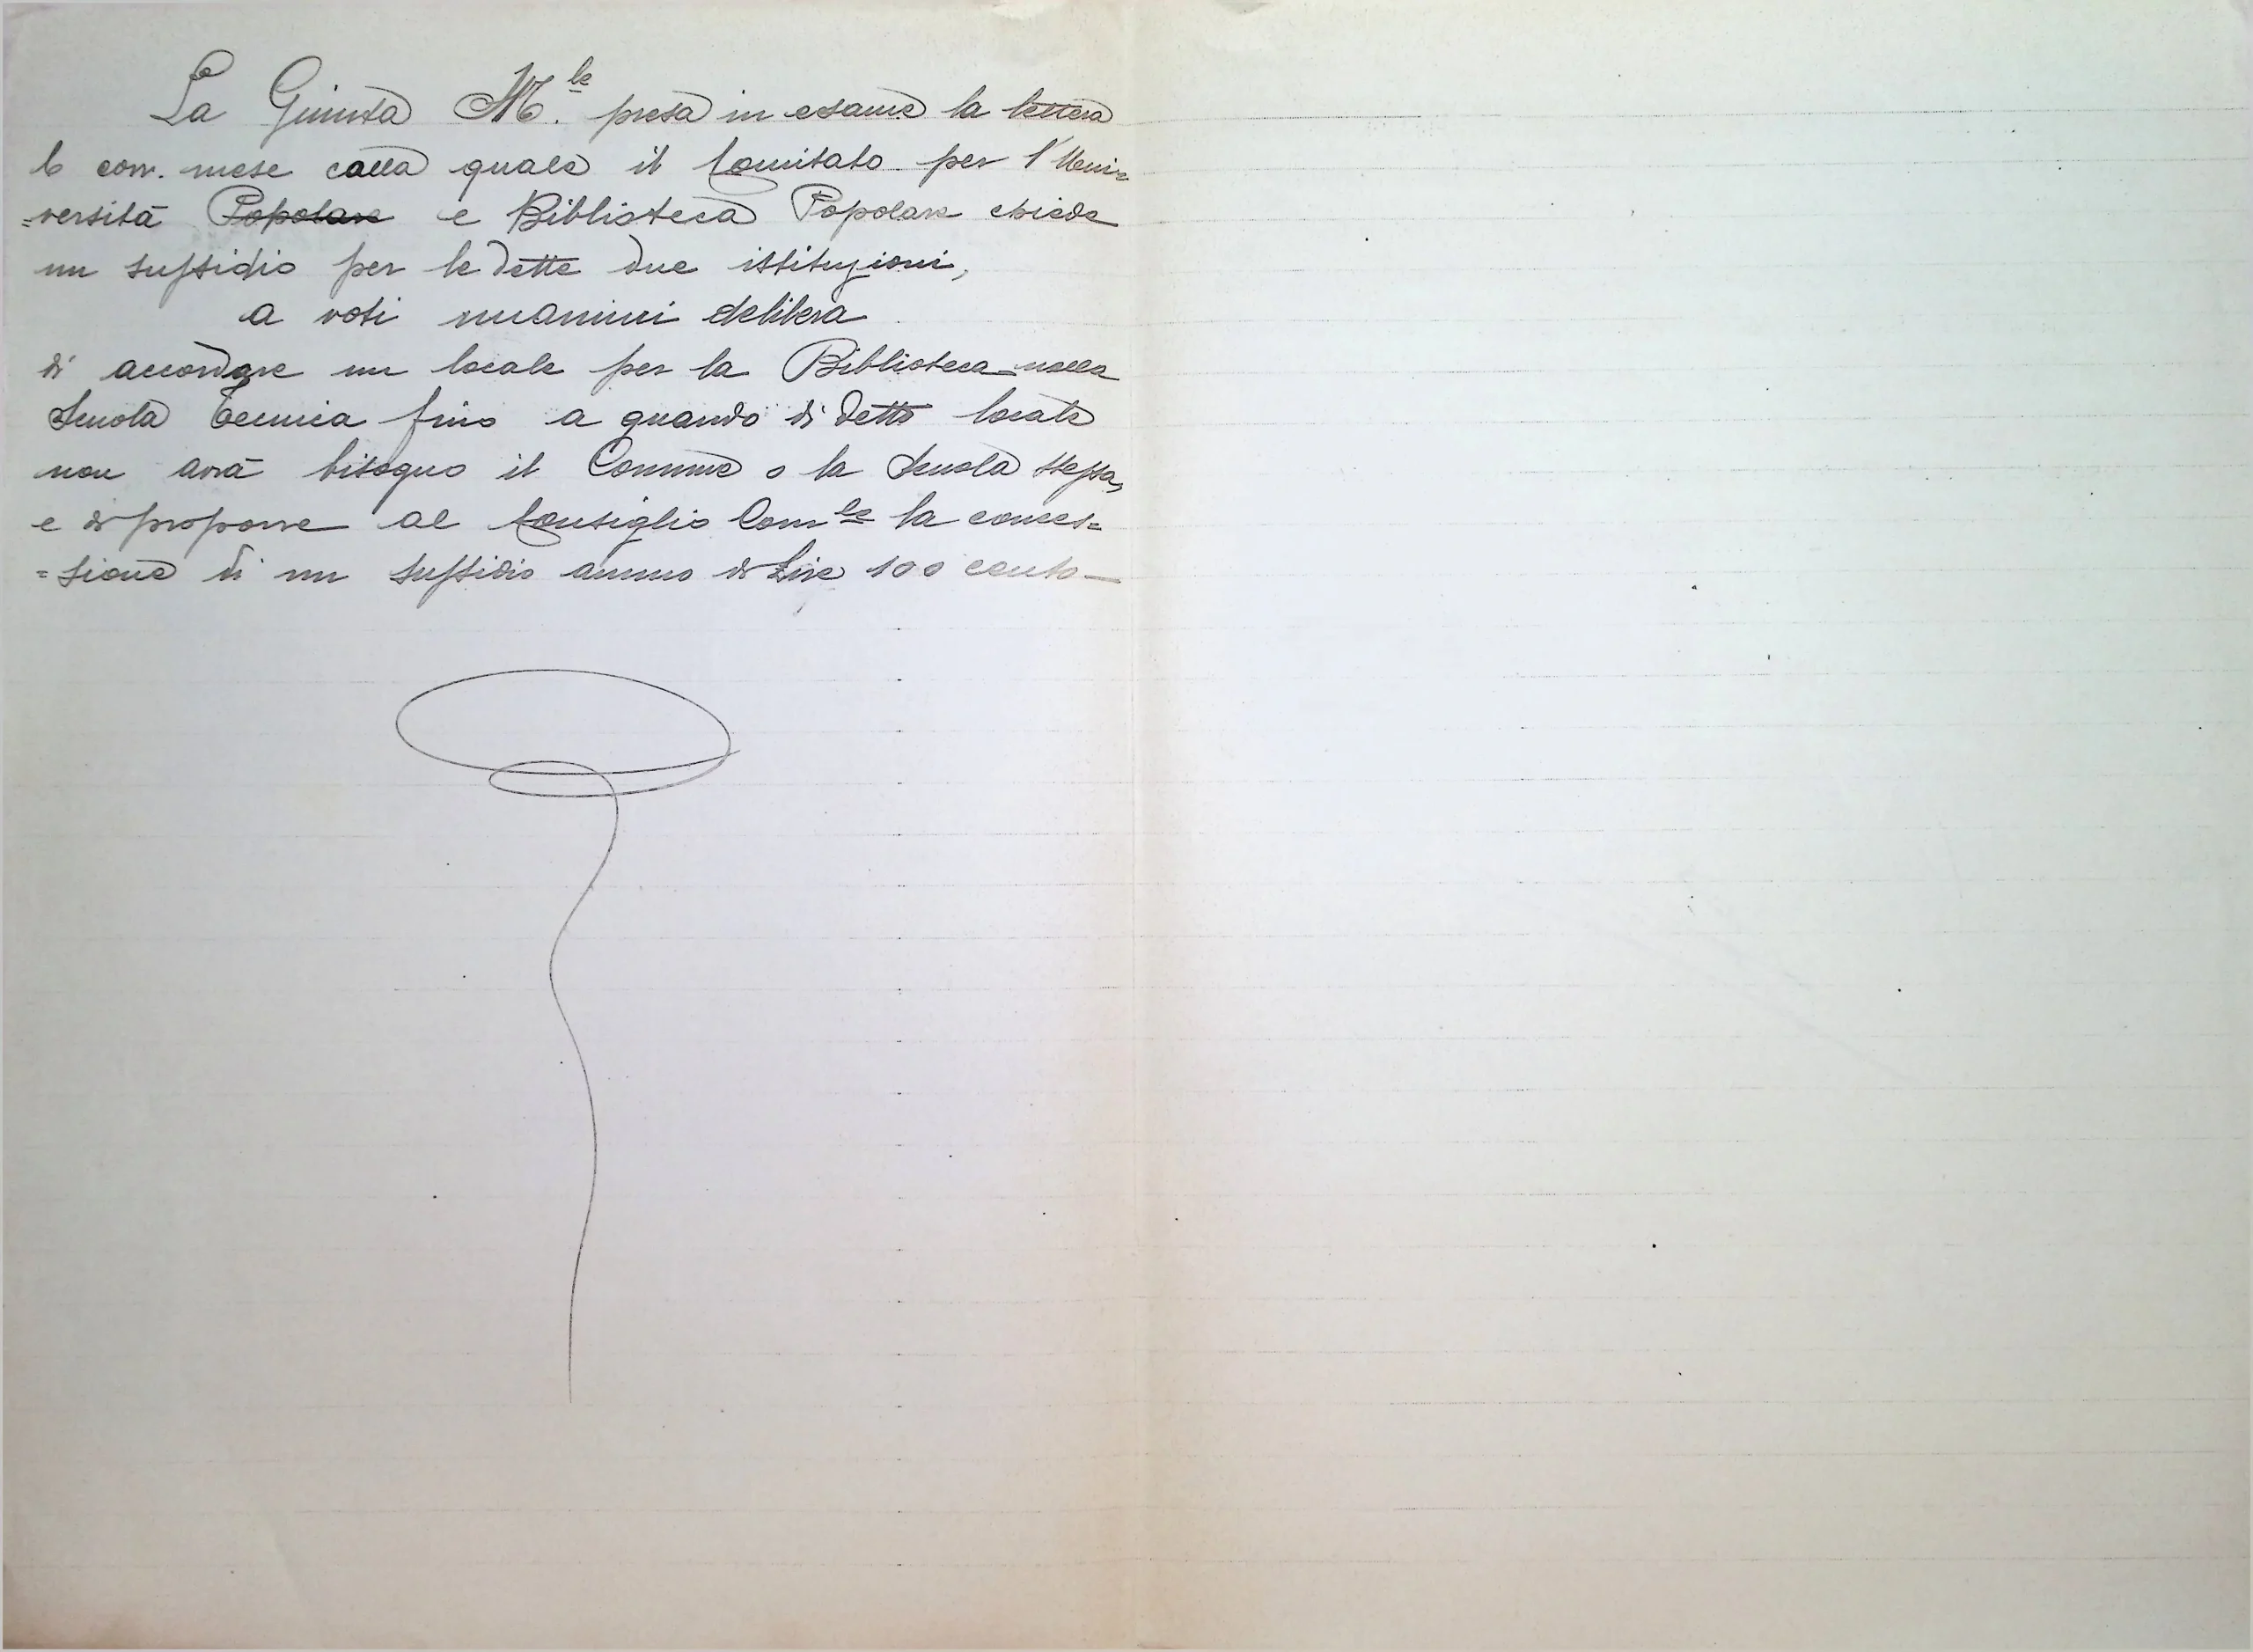 La Giunta M.le presa in esame la lettera
6 corr. mese colla quale il Comitato per l'Uni=
=versità Popolare e Biblioteca Popolare chiede
un sussidio per le dette due istituzioni,
a voti unanimi delibera
di accordare un locale per la Biblioteca nella
Scuola Tecnica fino a quando di detto locale
non avrà bisogno il Comune o la Scuola stessa,
e di proporre al Consiglio Com.le la conces=
=sione di un sussidio annuo di Lire 100 cento—